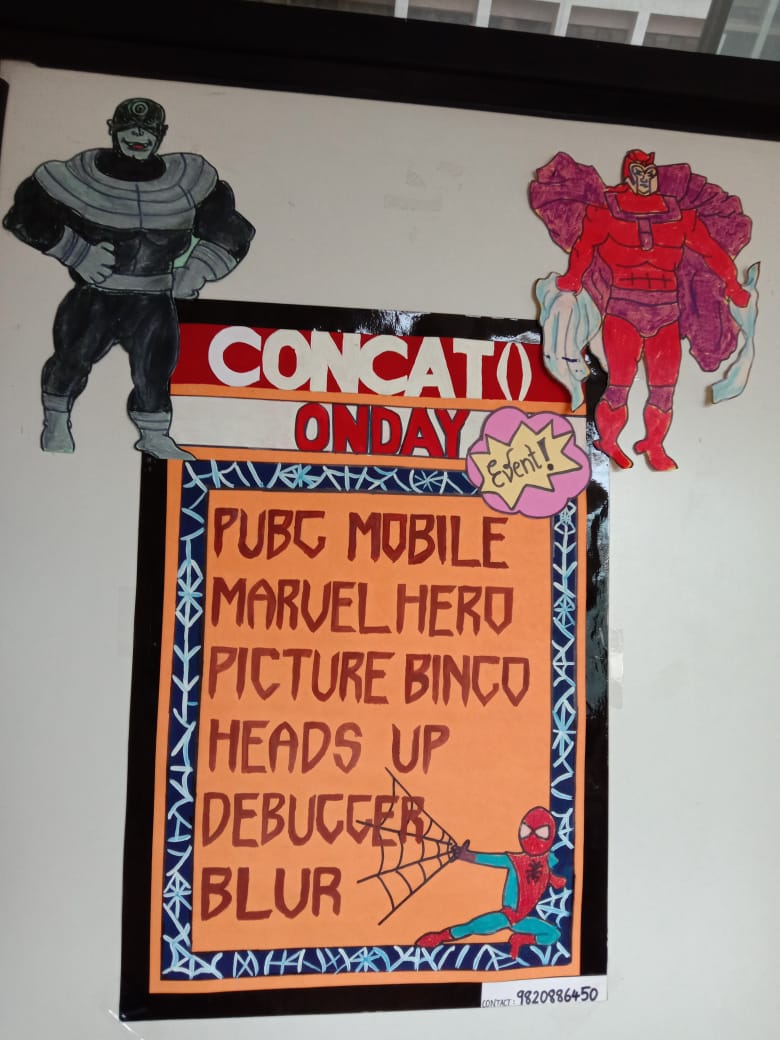 CONCAT()
ONDAY
Event!
PUBG MOBILE
MARVEL HERO
PICTURE BINGO
HEADS UP
DEBUGGER
BLUR
CONTACT: 9820886450